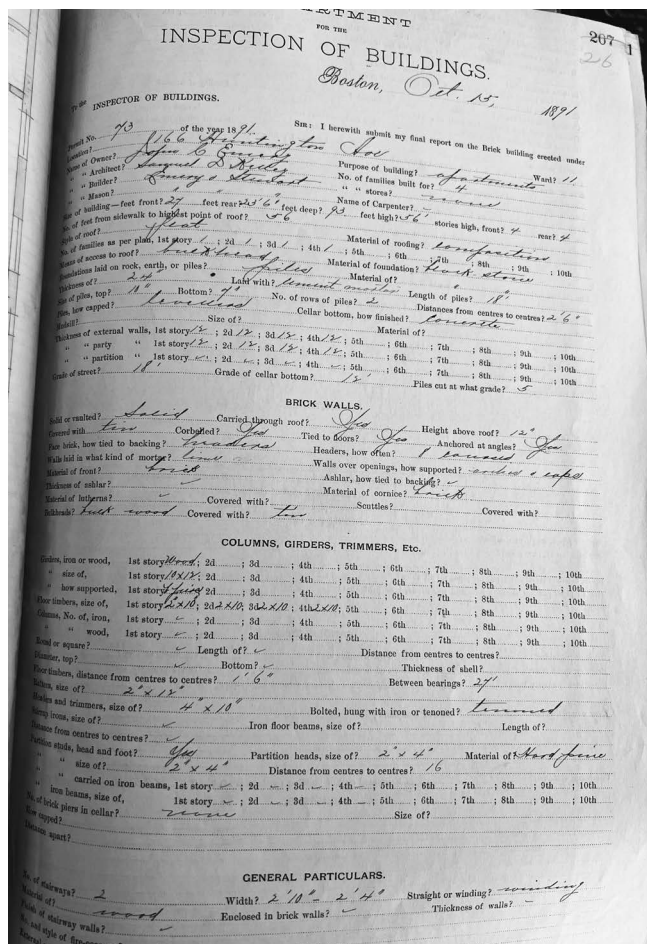 ARTMENT
FOR THE
INSPECTION OF BUILDINGS.
207 1
26
Boston, Oct. 15, 1891
To the INSPECTOR OF BUILDINGS.
SIR: I herewith submit my final report on the Brick building erected under
Permit No. 73 of the year 1891.
Location? 166 Huntington Ave Ward? 11
Name of Owner? John C Emery Purpose of building? apartments
" " Architect? Samuel D Kelley No. of families built for? 4
" " Builder? Emery & Stewart " " stores? none
" " Mason? " " Name of Carpenter?
Size of building—feet front? 27 feet rear? 23'6" feet deep? 93 feet high? 56' stories high, front? 4 rear? 4
No. of feet from sidewalk to highest point of roof? 56
Style of roof? flat Material of roofing? composition
No. of families as per plan, 1st story 1; 2d 1; 3d 1; 4th 1; 5th ; 6th ; 7th ; 8th ; 9th ; 10th
Means of access to roof? bulkhead Material of foundation? block stone
Foundations laid on rock, earth, or piles? piles Material of? "
Thickness of? 24" Laid with? cement mortar Length of piles? 18'
Size of piles, top? 10" Bottom? 7" No. of rows of piles? 2 Distances from centres to centres? 2'6"
Piles, how capped? levellers Cellar bottom, how finished? concrete
Size of? Material of?
Thickness of external walls, 1st story 12; 2d 12; 3d 12; 4th 12; 5th ; 6th ; 7th ; 8th ; 9th ; 10th
" " party " 1st story 12; 2d 12; 3d 12; 4th 12; 5th ; 6th ; 7th ; 8th ; 9th ; 10th
" " partition " 1st story ✓; 2d ✓; 3d ✓; 4th ✓; 5th ; 6th ; 7th ; 8th ; 9th ; 10th
Grade of street? 18' Grade of cellar bottom? 12' Piles cut at what grade? 5
BRICK WALLS.
Solid or vaulted? Solid Carried through roof? Yes Height above roof? 12"
Covered with? tin Corbelled? Yes Tied to floors? Yes Anchored at angles? Yes
Face brick, how tied to backing? headers Headers, how often? 8 courses
Walls laid in what kind of mortar? lime Walls over openings, how supported? arches & caps
Material of front? brick Ashlar, how tied to backing? ✓
Thickness of ashlar? ✓ Material of cornice? brick
Material of lutherns? ✓ Covered with? Scuttles? Covered with?
Bulkheads? bulk wood Covered with? tin
COLUMNS, GIRDERS, TRIMMERS, Etc.
Girders, iron or wood, 1st story wood; 2d ; 3d ; 4th ; 5th ; 6th ; 7th ; 8th ; 9th ; 10th
" size of, 1st story 10x12; 2d ; 3d ; 4th ; 5th ; 6th ; 7th ; 8th ; 9th ; 10th
" how supported, 1st story ; 2d ; 3d ; 4th ; 5th ; 6th ; 7th ; 8th ; 9th ; 10th
Floor timbers, size of, 1st story 2x10; 2d 2x10; 3d 2x10; 4th 2x10; 5th ; 6th ; 7th ; 8th ; 9th ; 10th
Columns, No. of, iron, 1st story ✓; 2d ; 3d ; 4th ; 5th ; 6th ; 7th ; 8th ; 9th ; 10th
" " wood, 1st story ✓; 2d ; 3d ; 4th ; 5th ; 6th ; 7th ; 8th ; 9th ; 10th
Round or square? ✓ Length of? ✓ Distance from centres to centres?
Diameter, top? ✓ Bottom? ✓ Thickness of shell?
Floor timbers, distance from centres to centres? 1'6" Between bearings? 27'
Rafters, size of? 2" x 12"
Headers and trimmers, size of? 4" x 10" Bolted, hung with iron or tenoned? tenoned
Stirrup irons, size of? ✓ Iron floor beams, size of? Length of?
Distance from centres to centres? ✓
Partition studs, head and foot? Yes Partition heads, size of? 2" x 4" Material of? Hard pine
" " size of? 2" x 4" Distance from centres to centres? 16
" carried on iron beams, 1st story ✓; 2d ✓; 3d ✓; 4th ✓; 5th ; 6th ; 7th ; 8th ; 9th ; 10th
" iron beams, size of, 1st story ✓; 2d ✓; 3d ✓; 4th ✓; 5th ; 6th ; 7th ; 8th ; 9th ; 10th
No. of brick piers in cellar? none Size of?
How capped?
Distance apart?
GENERAL PARTICULARS.
No. of stairways? 2 Width? 2'10" - 2'4" Straight or winding? winding
Material of? wood Enclosed in brick walls? ✓ Thickness of walls?
Finish of stairway walls? ✓